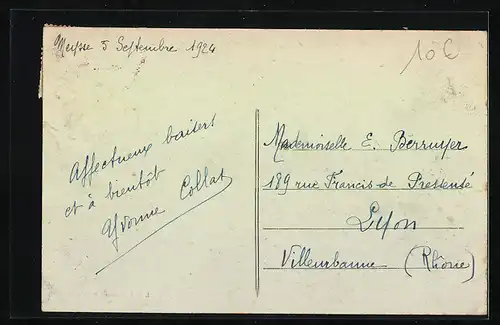 Meysse 5 Septembre 1924
10 €
Affectueux baisers
et à bientôt
Yvonne Collat
Mademoiselle E. Berruyer
189 rue Francis de Pressensé
Lyon
Villeurbanne (Rhône)